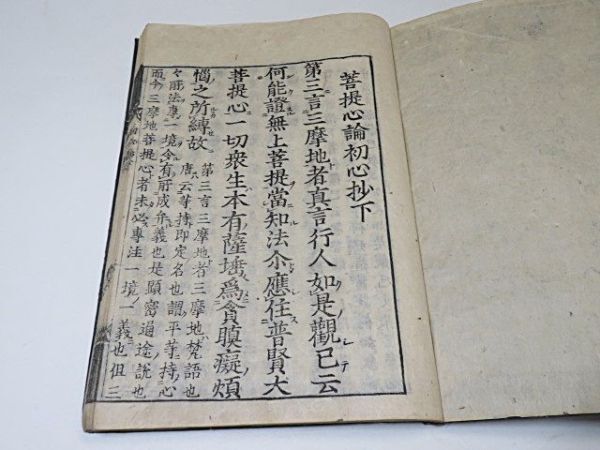 菩提心論初心抄下
第三言三摩地者真言行人如是觀已云
何能證無上菩提當知法尒應住普賢大
菩提心一切衆生本有薩埵爲貪瞋癡煩
惱之所縛故
第三言三摩地者三摩地梵語也
唐云等持即定名也謂平等持心
義也是顯密通途說也
而今三摩地菩提心者未必專注一境一義也但三